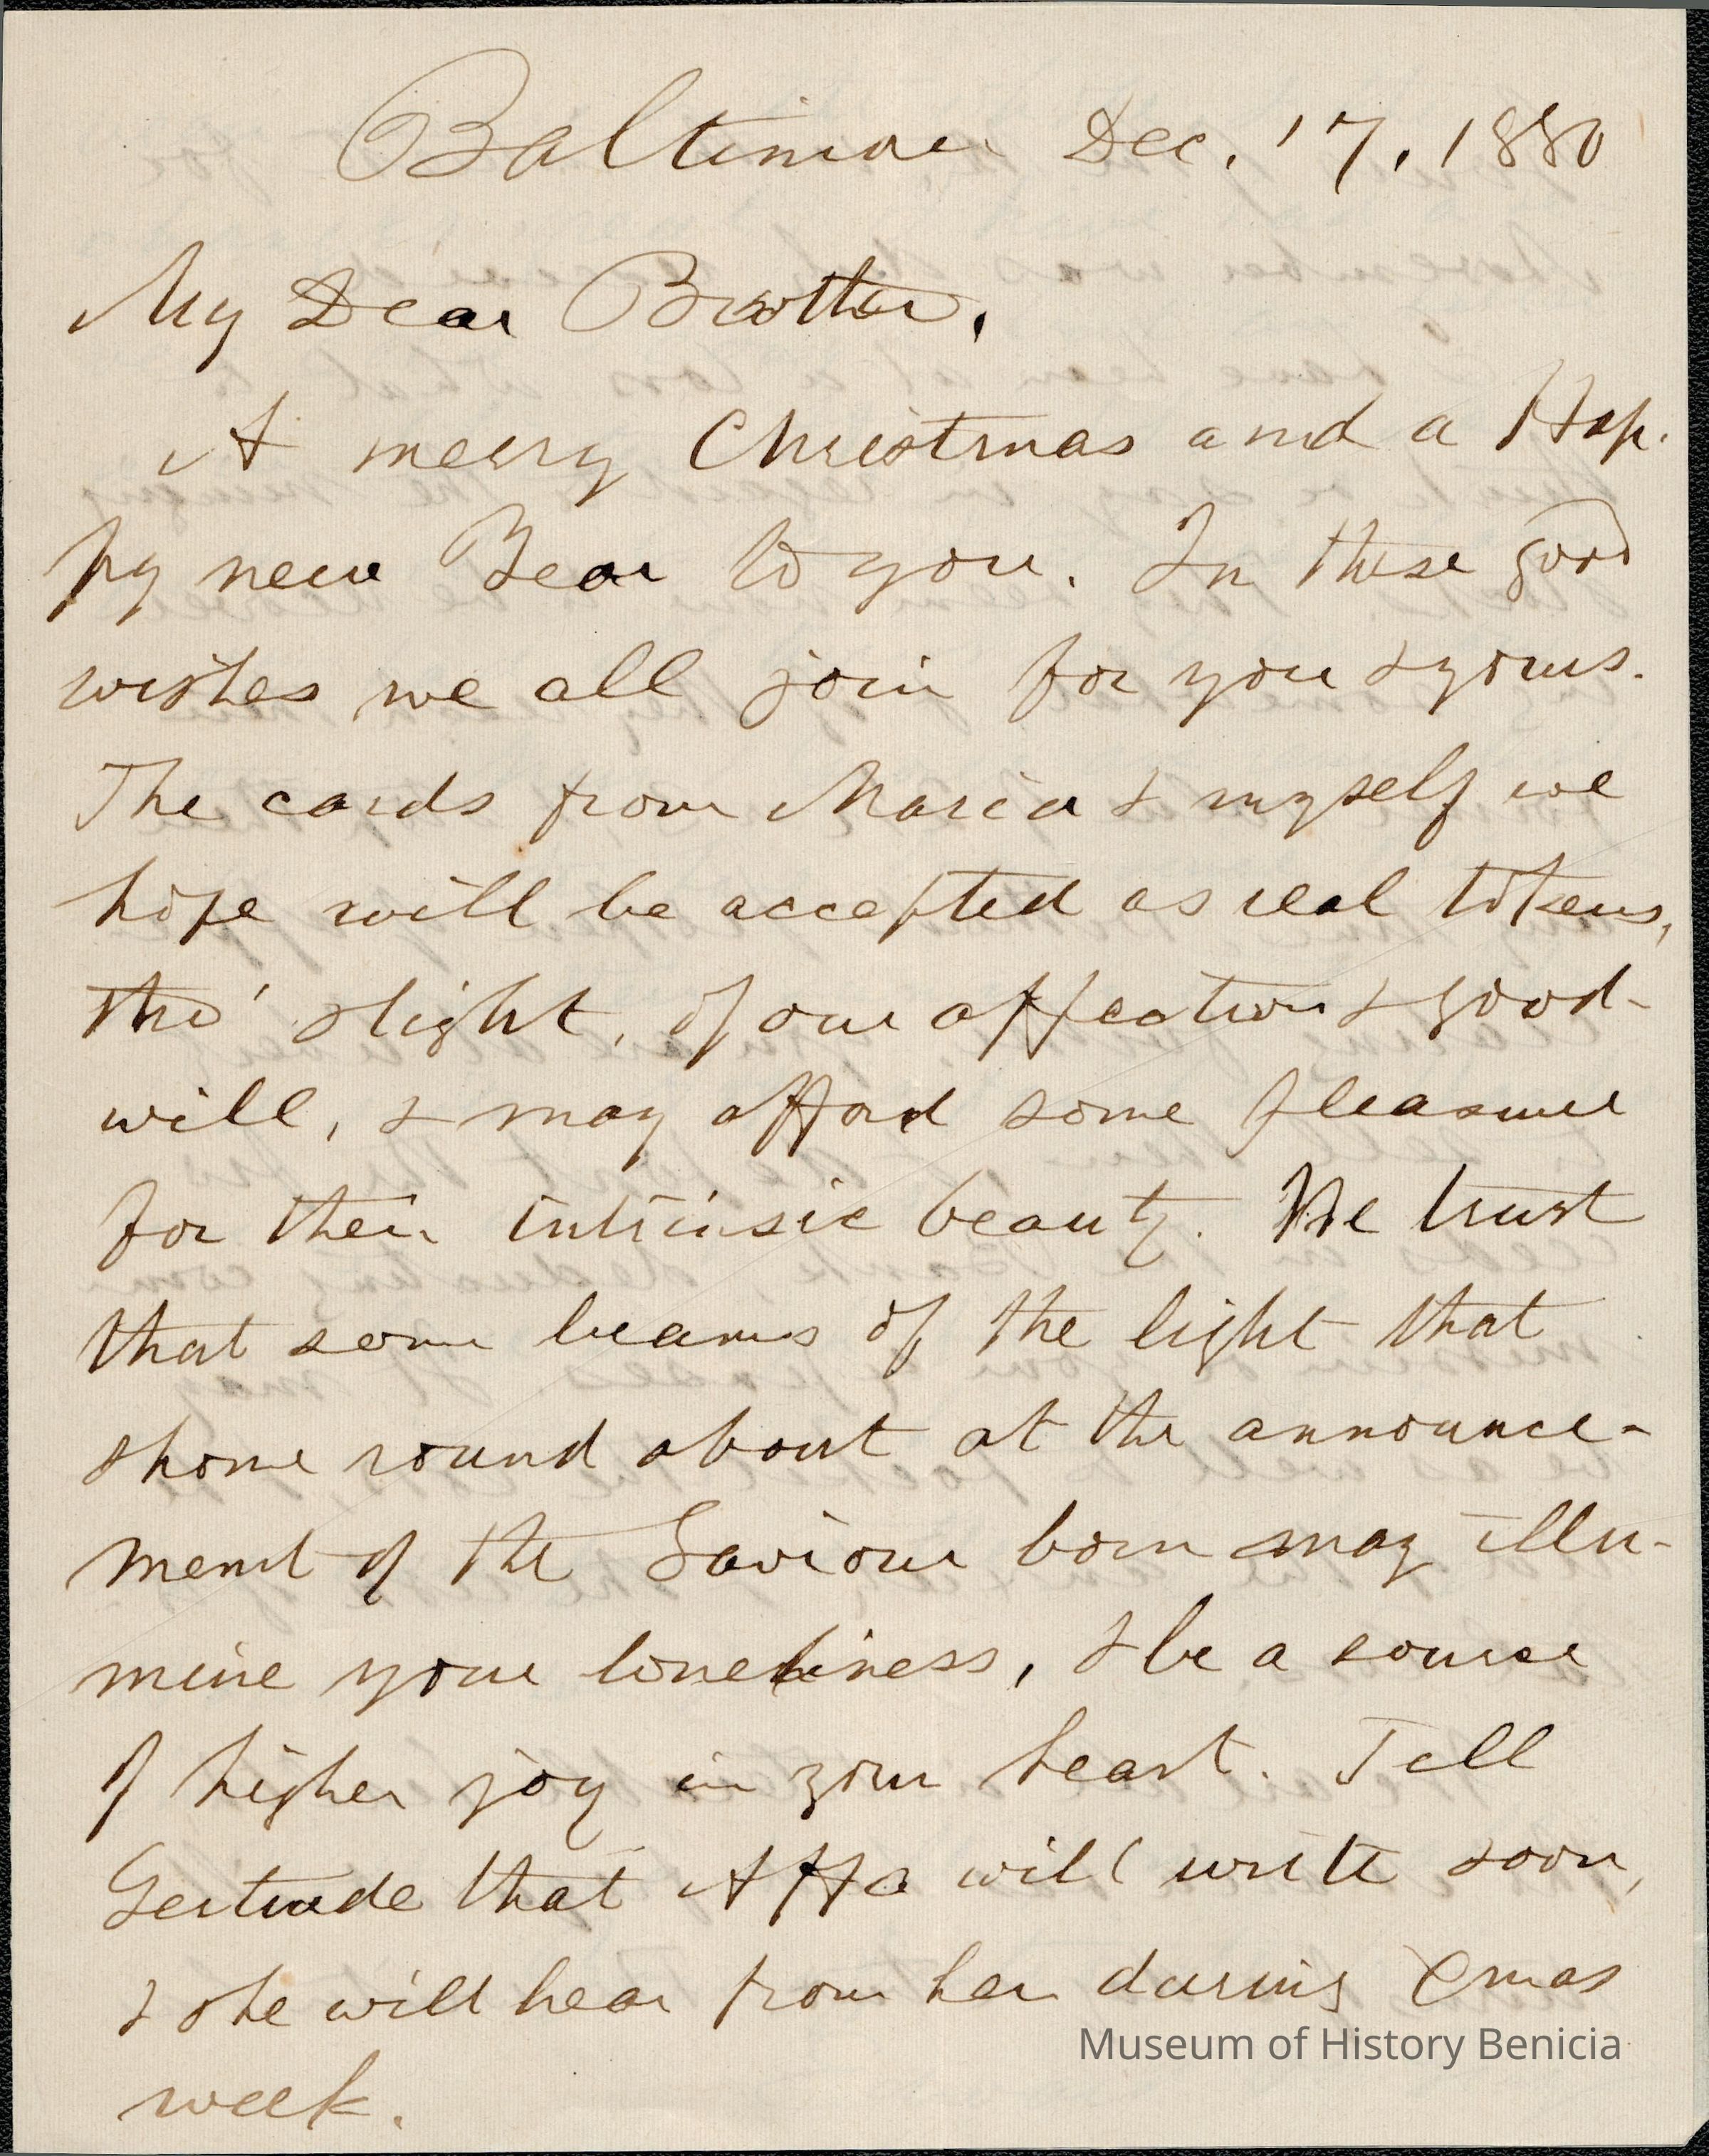 Baltimore Dec. 17, 1880
My Dear Brother,
A merry Christmas and a Hap-
py new Year to you. In these good
wishes we all join for you & yours.
The cards from Maria & myself we
hope will be accepted as real tokens,
tho' slight, of our affection & good-
will, & may afford some pleasure
for their intrinsic beauty. We trust
that some beams of the light that
shone round about at the announce-
ment of the Saviour born may illu-
mine your loneliness, & be a source
of higher joy in your heart. Tell
Gertrude that Affa will write soon,
& she will hear from her during Xmas
week.
Museum of History Benicia